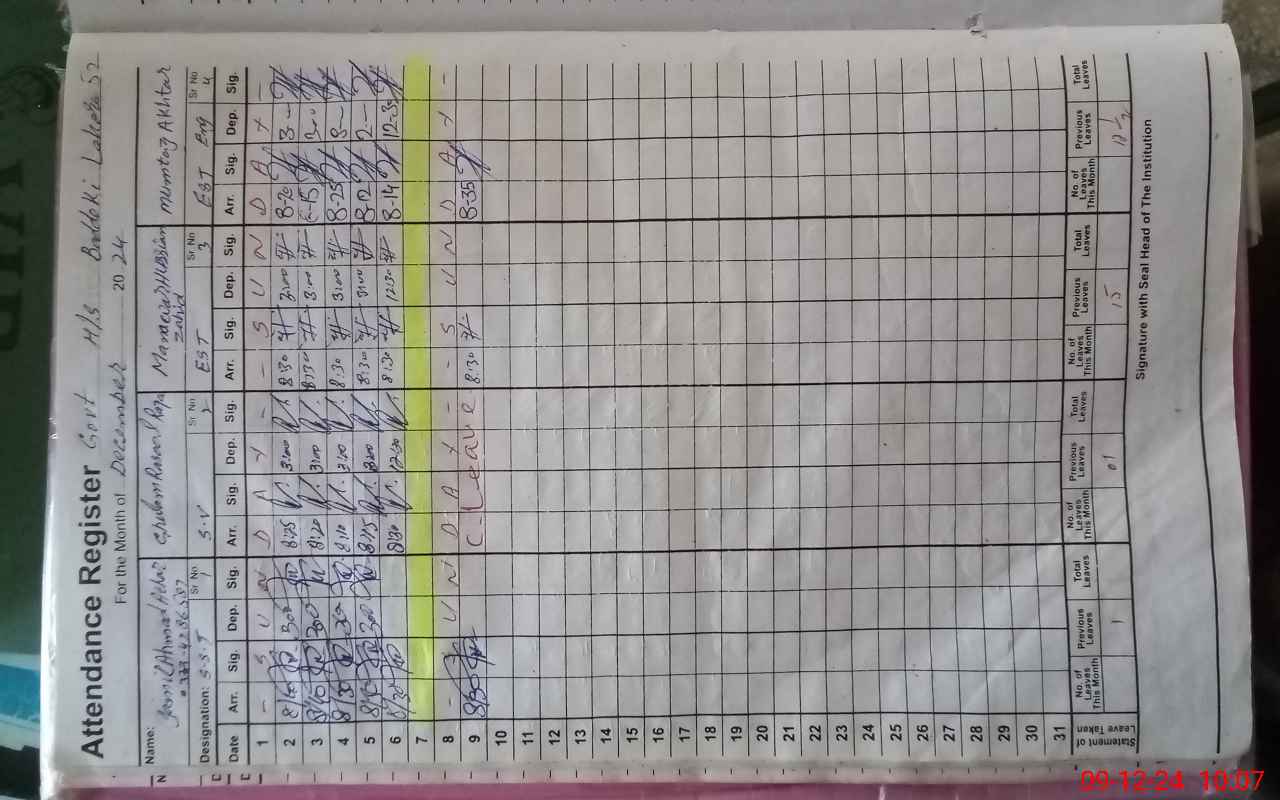 Attendance Register Govt M/S Baloki Lahore 52
For the Month of December 20 24
Name: Jamil Ahmad Mumtaz Akhtar
Designation: S.S.T Sr No 1 S.V Sr No 2 EST Sr No 3 EST Eng Sr No 4
Date Arr. Sig. Dep. Sig. Arr. Sig. Dep. Sig. Arr. Sig. Dep. Sig. Arr. Sig. Dep. Sig.
1 - S U N D A Y - - S U N D A Y -
2 8/10 300 8:25 3:00 8:30 3:00 8-20 3-
3 8/10 300 8:20 3:00 8:30 3:00 8-15 3-00
4 8/30 300 8:10 3:00 8:30 3:00 8-25 3-
5 8/10 300 8:15 3:00 8:30 3:00 8-12 2-
6 8/30 8:30 12:30 8:30 12:30 8-14 12-30
7
8 - S U N D A Y - - S U N D A Y -
9 8/30 C-Leave 8:30 8-35
10
11
12
13
14
15
16
17
18
19
20
21
22
23
24
25
26
27
28
29
30
31
Statement of Leave Taken No. of Leaves This Month Previous Leaves Total Leaves No. of Leaves This Month Previous Leaves Total Leaves No. of Leaves This Month Previous Leaves Total Leaves No. of Leaves This Month Previous Leaves Total Leaves
1 01 15
Signature with Seal Head of The Institution
09-12-24 10:07